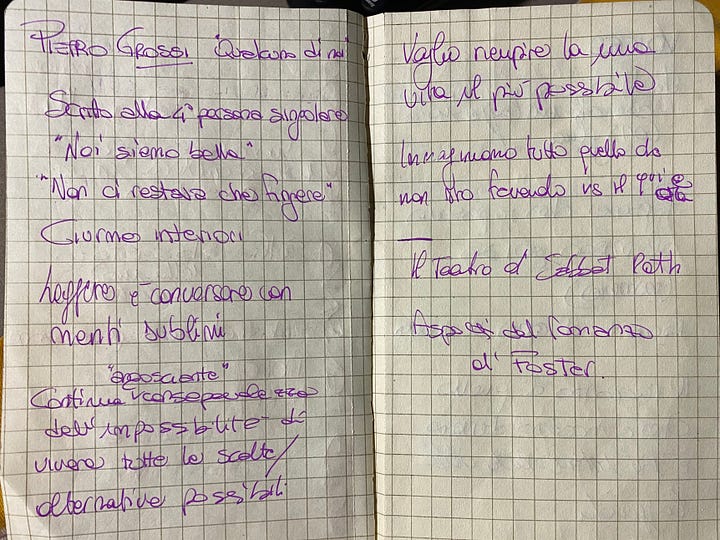 PIETRO GROSSI "Qualcuno di noi"
Scritto alla 4ª persona singolare
"Noi siamo bella"
"Non ci restava che fingere"
Ciurme interiori
Leggere è conversare con
menti sublimi
"angosciante"
Continua consapevolezza
dell'impossibilità di
vivere tutte le scelte/
alternative possibili
Voglio riempire la mia
vita il più possibile
Immaginiamo tutto quello che
non sto facendo vs il qui e
ora
Il Teatro di Sabbat Roth
Aspetti del Romanzo
di Foster.